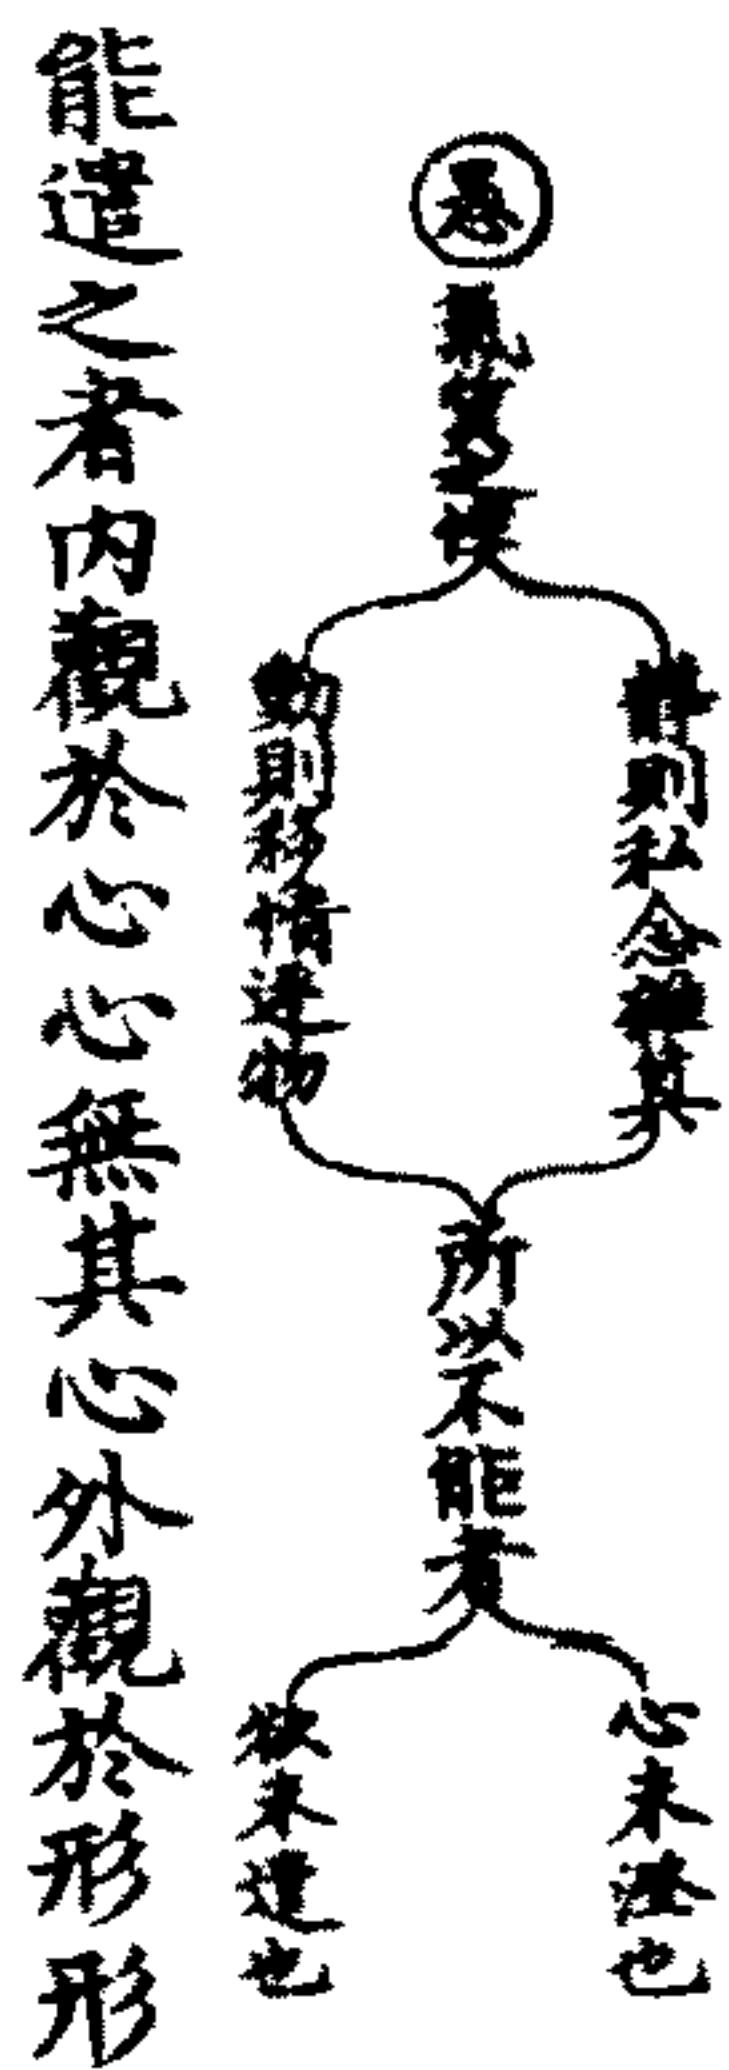 氣質
靜則私念雜
動則移情逐物
所以不能者
心未澄也
欲未遣也
能遣之者內觀於心心無其心外觀於形形